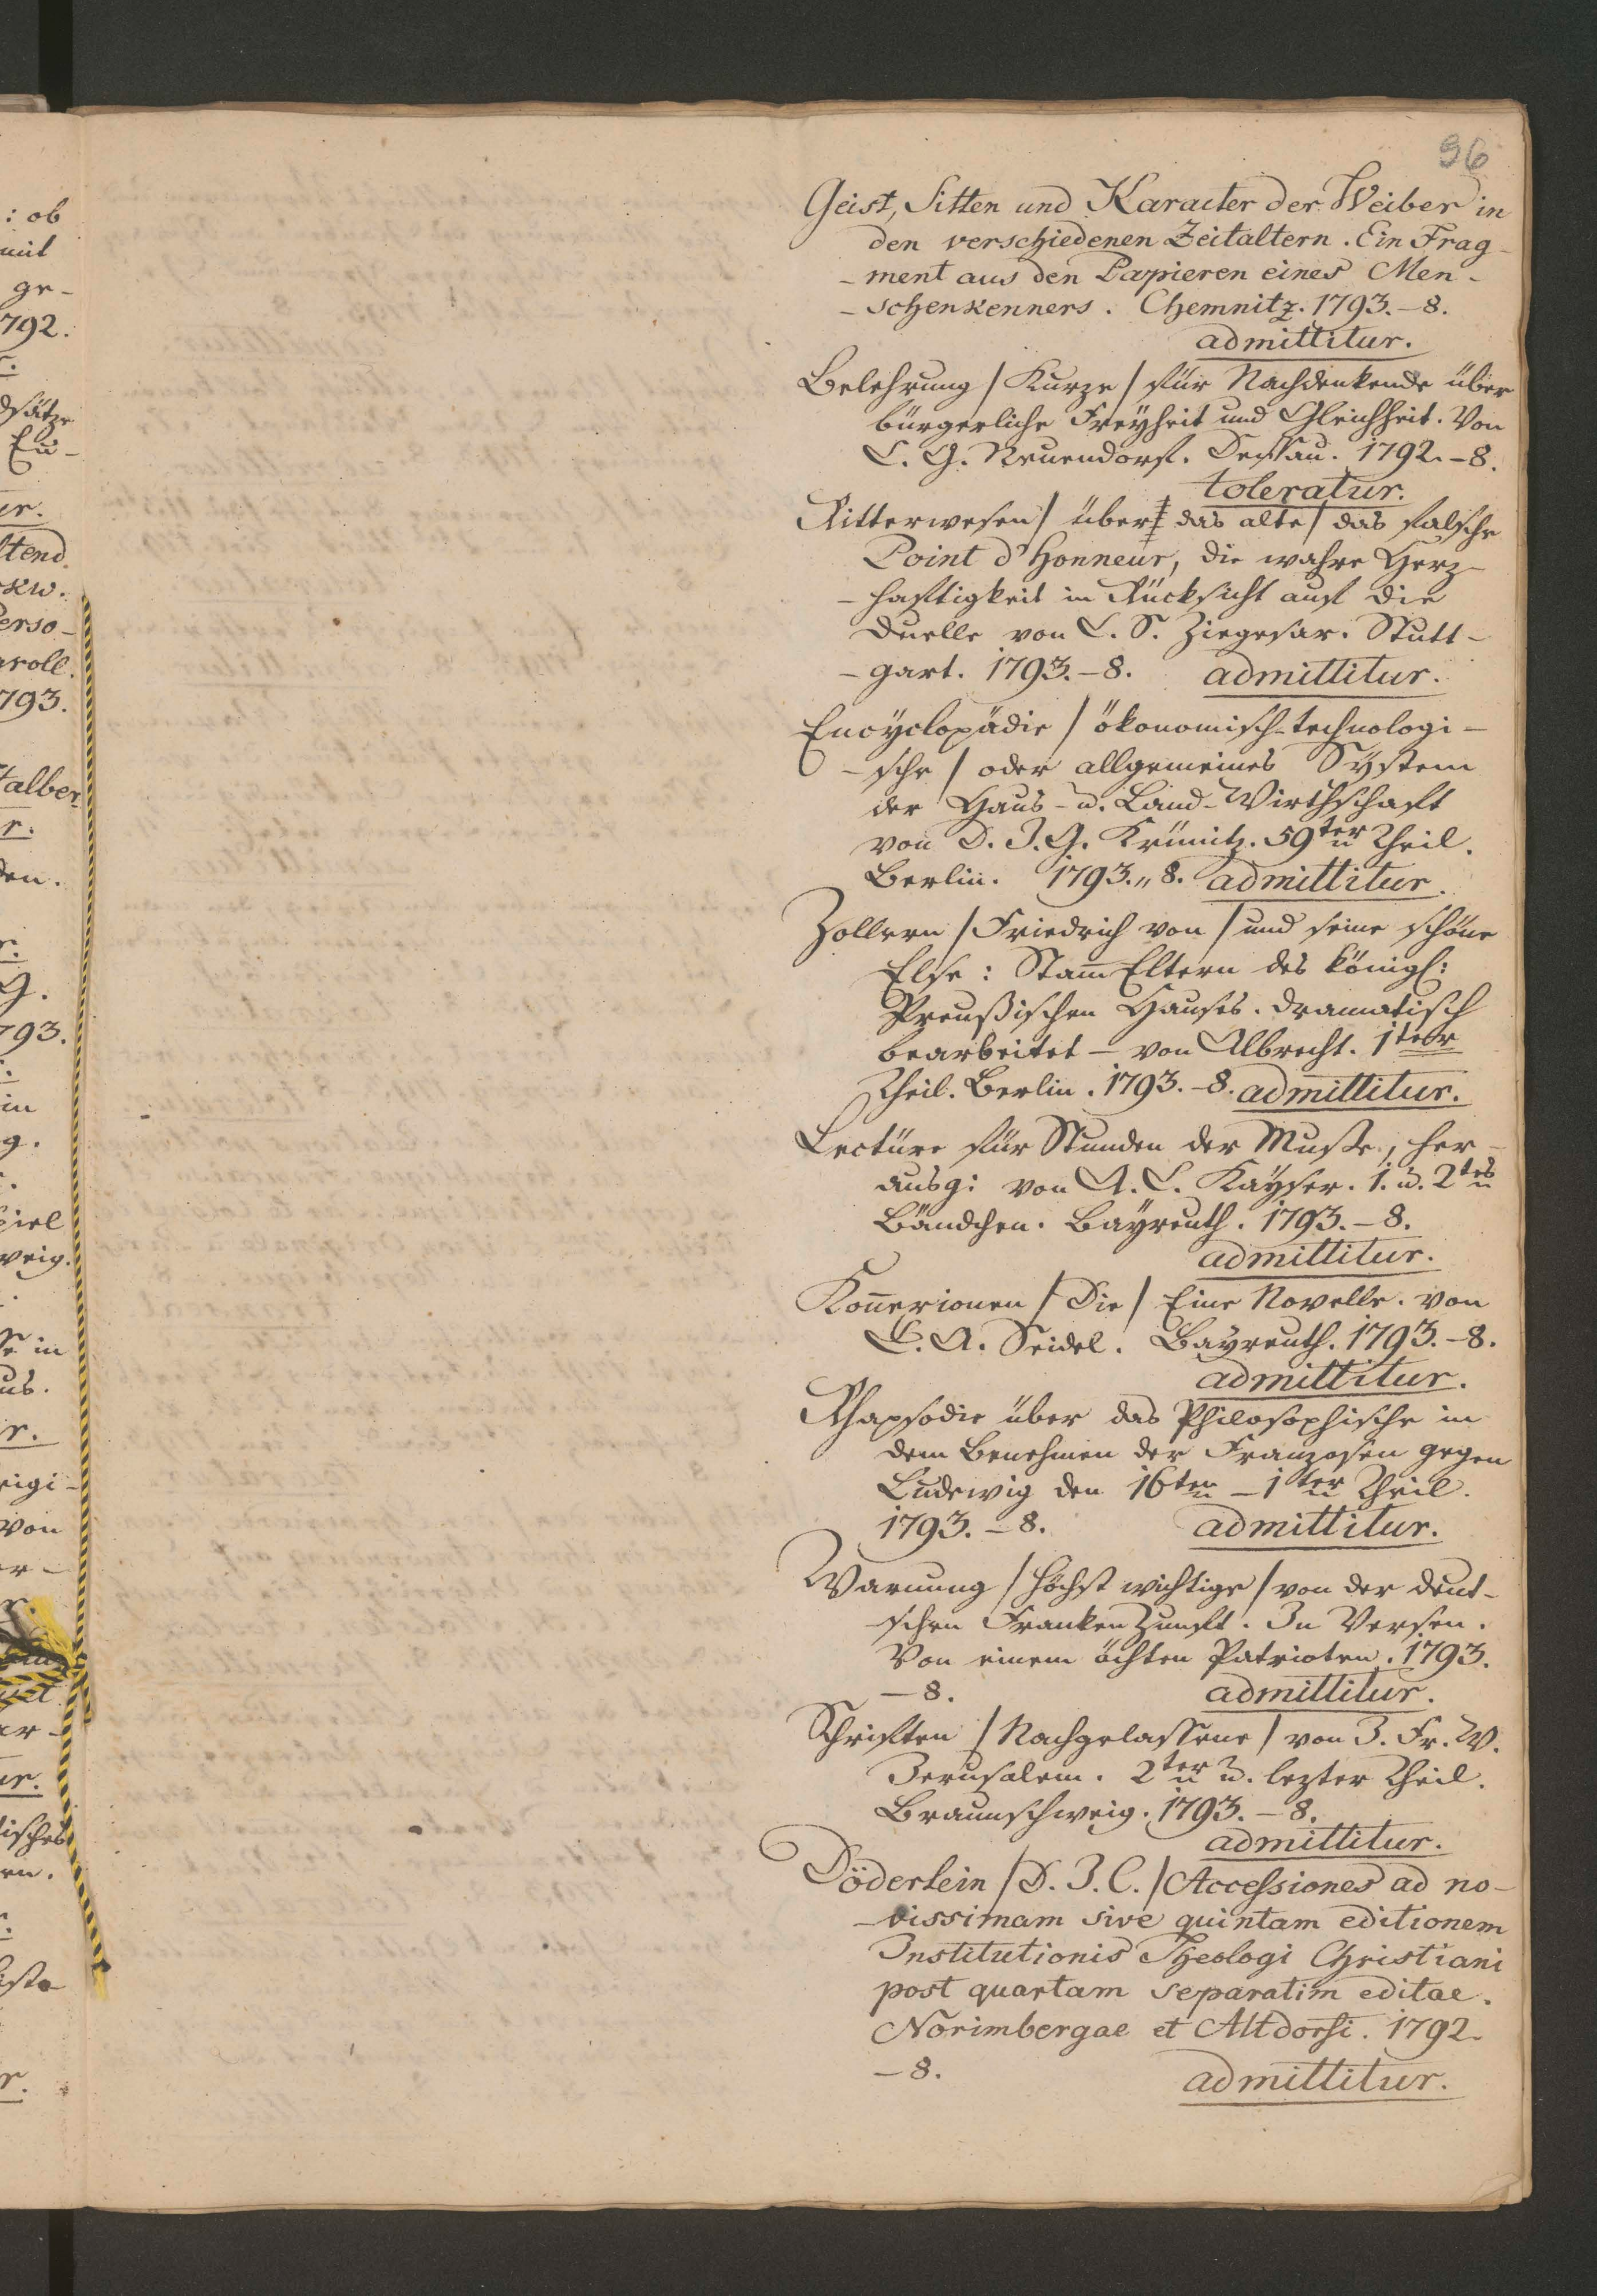 96
Geist, Sitten und Karacter der Weiber in
den verschiedenen Zeitaltern. Ein Frag-
-ment aus den Papieren eines Men-
-schenkenners. Chemnitz. 1793.-8.
admittitur.
Belehrung / Kurze / für Nachdenkende über
bürgerliche Freyheit und Gleichheit. Von
C. G. Neuendorf. Dessau. 1792.-8.
toleratur.
Ritterwesen / über das alte / das falsche
Point d'Honneur, die wahre Herz-
-haftigkeit in Rücksicht auf die
Duelle von C. S. Ziegesar. Stutt-
-gart. 1793.-8. admittitur.
Encÿclopädie / ökonomisch-technologi-
-sche / oder allgemeines Sÿstem
der Haus- u. Land-Wirthschaft
von D. J. G. Krünitz. 59ter Theil.
Berlin. 1793.„8. admittitur.
Zollern / Friedrich von / und seine schöne
Else: Stam̅ Eltern des königl:
Preußischen Hauses. Dramatisch
bearbeitet - von Albrecht. 1ter
Theil. Berlin. 1793.-8. admittitur.
Lectüre für Stunden der Muße, her-
ausg: von A. C. Kaÿser. 1. u. 2tes
Bändchen. Baÿreuth. 1793.-8.
admittitur.
Kon̅exionen / Die / Eine Novelle. von
C. A. Seidel. Baÿreuth. 1793.-8.
admittitur.
Rhapsodie über das Philosophische in
dem Benehmen der Franzosen gegen
Ludewig den 16ten - 1ter Theil.
1793.-8. admittitur.
Warnung / höchst wichtige / von der deut-
-schen Franken Zunft. In Versen.
Von einem ächten Patrioten. 1793.
-8. admittitur.
Schriften / Nachgelassene / von J. Fr. W.
Jerusalem. 2ter u. lezter Theil.
Braunschweig. 1793.-8.
admittitur.
Döderlein / D. J. C. / Accessiones ad no-
-vissimam sive quintam editionem
Institutionis Theologi Christiani
post quartam separatim editae.
Norimbergae et Altdorfi. 1792.
-8. admittitur.